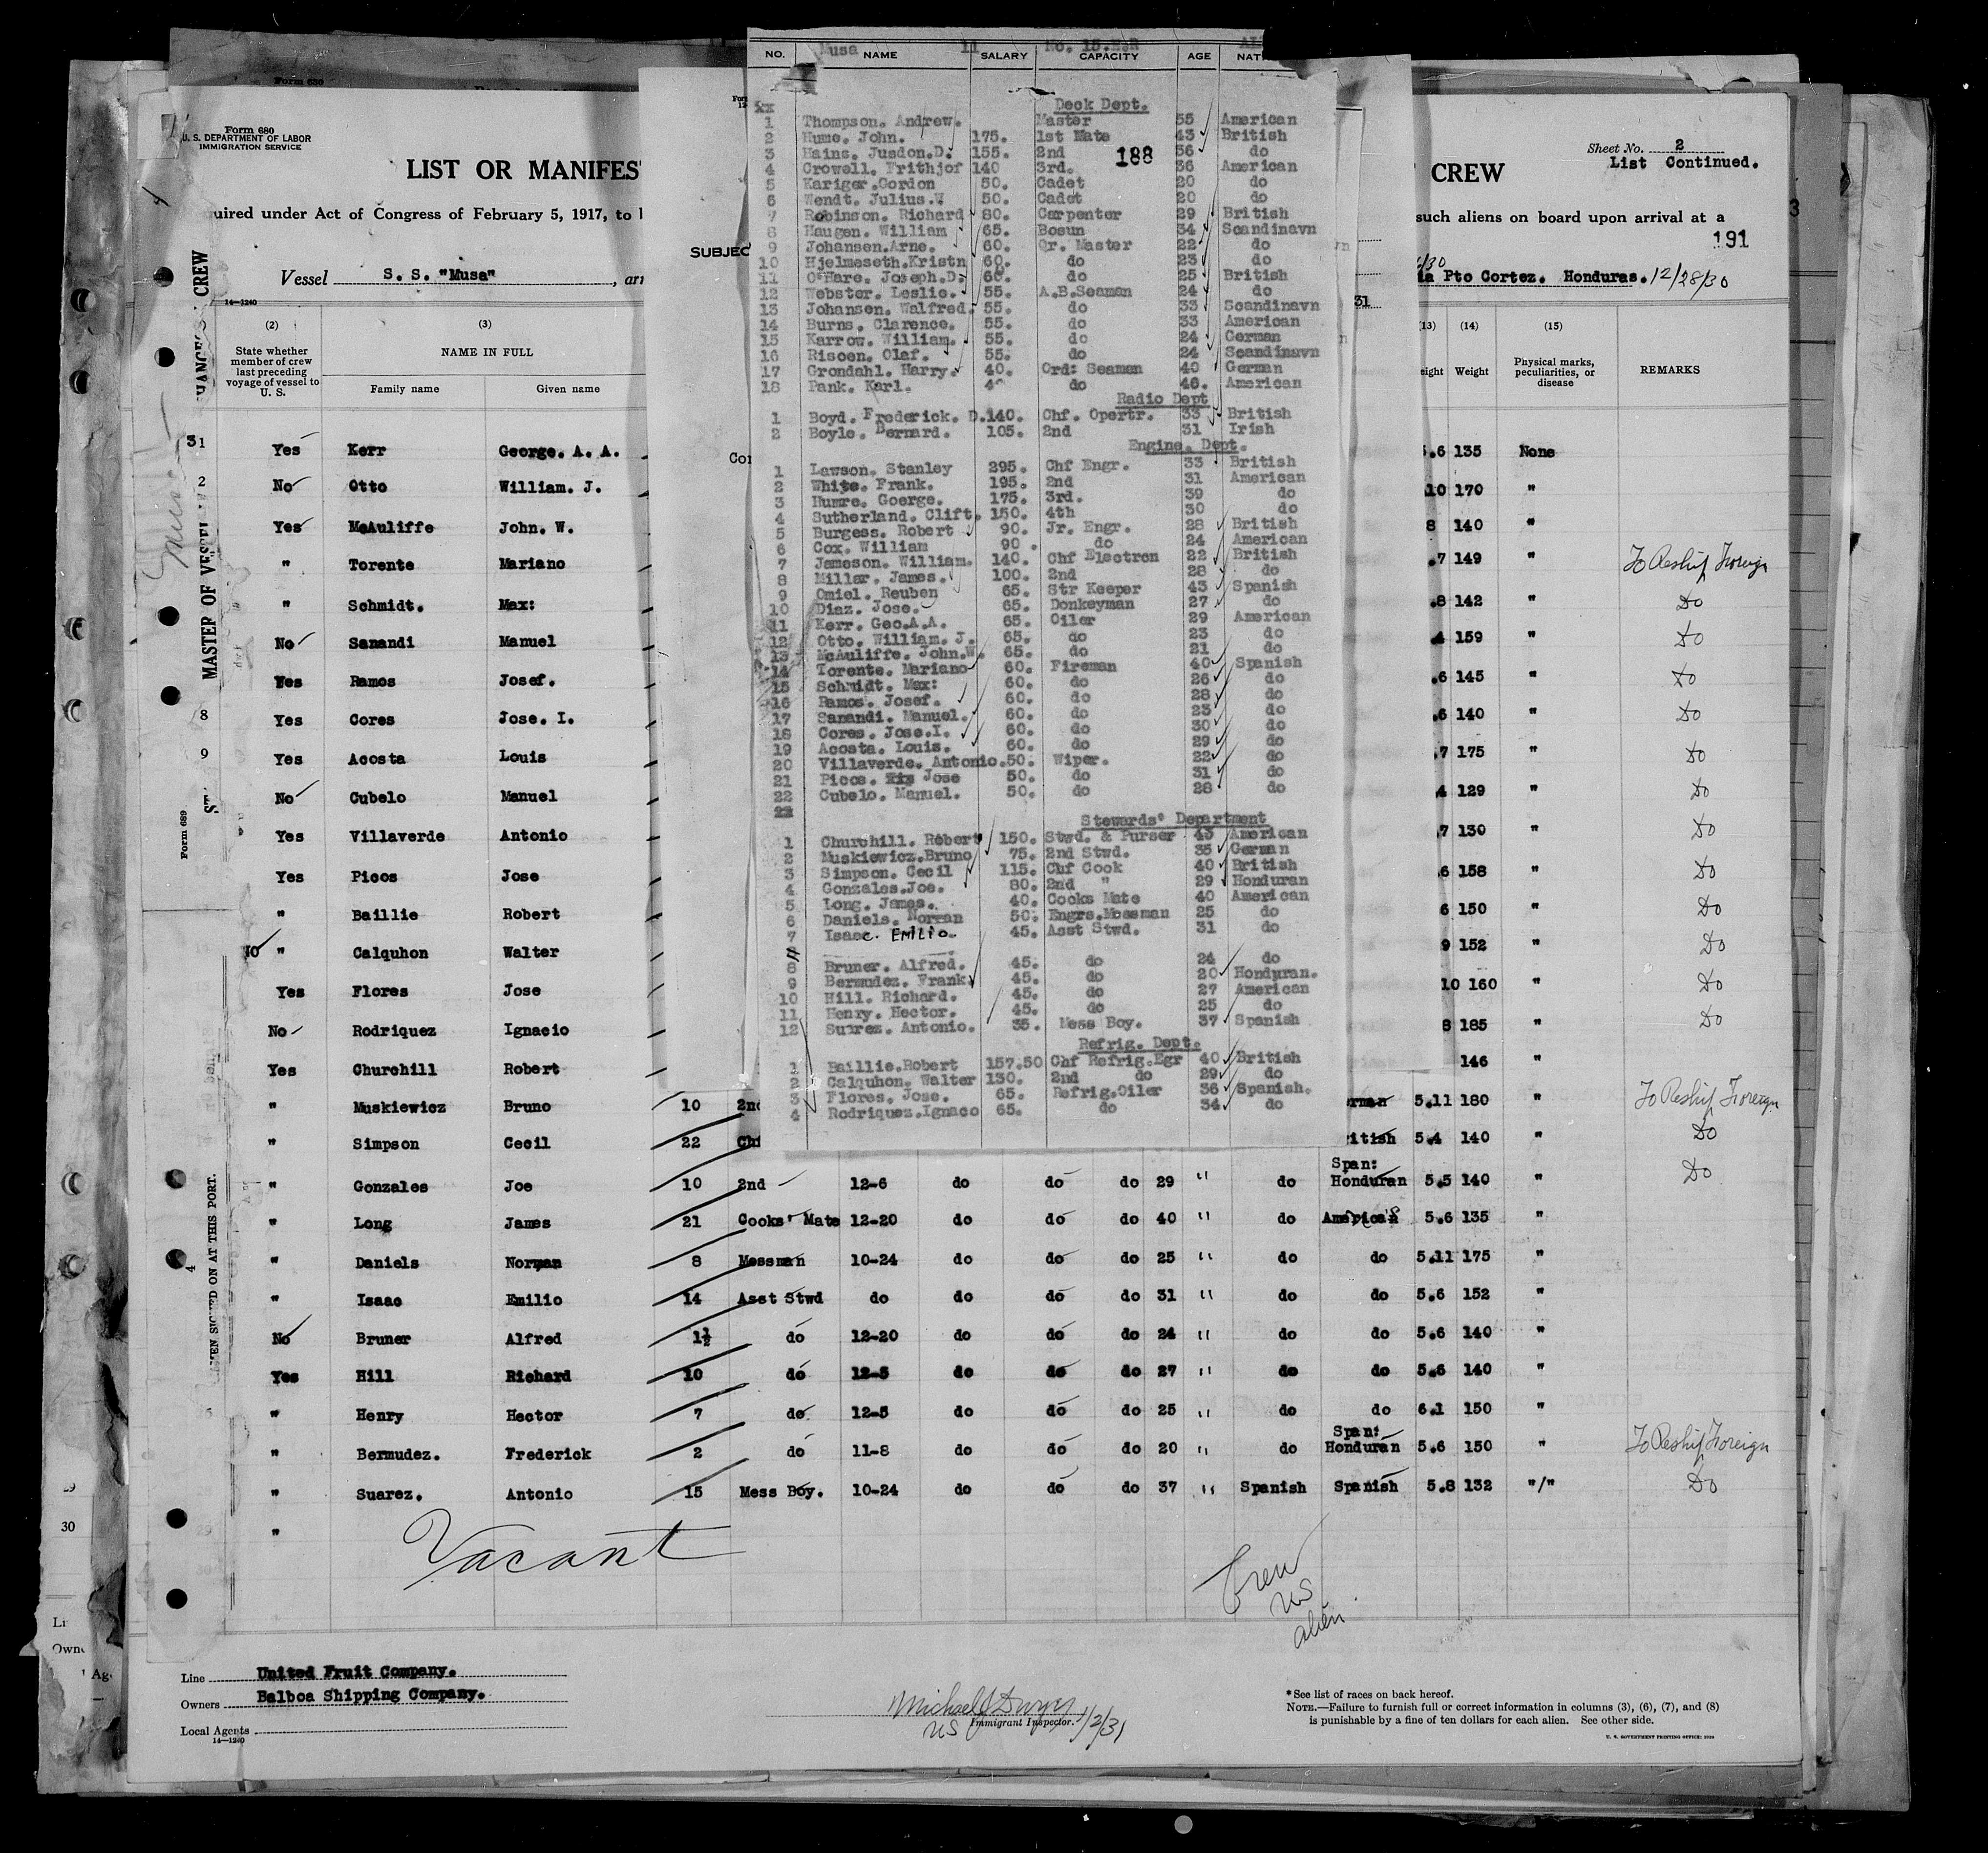 Form 630
Form 680
U. S. DEPARTMENT OF LABOR
IMMIGRATION SERVICE
LIST OR MANIFES
CREW
Sheet No. 2
List Continued.
quired under Act of Congress of February 5, 1917, to
such aliens on board upon arrival at a
191
Vessel S. S. "Musa", arr
ia Pto Cortez. Honduras. 12/28/30
14—1240
SUBJEC
NO. NAME SALARY CAPACITY AGE NAT
Musa 11 No. 15.
Deck Dept.
1 Thompson. Andrew. Master 55 American
2 Hume. John. 175. 1st Mate 43 British
3 Hains. Jusdon.D. 155. 2nd 36 do
188
4 Crowell. Frithjof 140 3rd. 36 American
5 Kariger.Gordon 50. Cadet 20 do
6 Wendt. Julius. 50. Cadet 20 do
7 Robinson. Richard 80. Carpenter 29 British
8 Haugen. William 65. Bosun 34 Scandinavn
9 Johansen.Arne. 60. Qr. Master 22 do
10 Hjelmeseth.Kristn 60. do 23 do
11 O'Hare. Joseph.D. 60. do 25 British
12 Webster. Leslie. 55. A.B.Seaman 24 do
13 Johansen. Walfred. 55. do 33 Scandinavn
14 Burns. Clarence. 55. do 33 American
15 Karrow. William. 55. do 24 German
16 Risoen. Olaf. 55. do 24 Scandinavn
17 Grondahl. Harry. 40. Ord: Seaman 40 German
18 Pank. Karl. do 46. American
Radio Dept
1 Boyd. Frederick. D.140. Chf. Opertr. 33 British
2 Boyle. Bernard. 105. 2nd 31 Irish
Engine. Dept.
1 Lawson. Stanley 295. Chf Engr. 33 British
2 White. Frank. 195. 2nd 31 American
3 Humre. Goerge. 175. 3rd. 39 do
4 Sutherland. Clift. 150. 4th 30 do
5 Burgess. Robert 90. Jr. Engr. 28 British
6 Cox. William 90. do 24 American
7 Jameson. William. 140. Chf Electron 22 British
8 Millar. James. 100. 2nd 28 do
9 Omiel. Reuben 65. Str Keeper 43 Spanish
10 Diaz. Jose. 65. Donkeyman 27 do
11 Kerr. Geo.A.A. 65. Oiler 29 American
12 Otto. William. J. 65. do 23 do
13 McAuliffe. John.W. 65. do 21 do
14 Torente. Mariano 60. Fireman 40 Spanish
15 Schmidt. Max: 60. do 26 do
16 Ramos. Josef. 60. do 28 do
17 Sanandi. Manuel. 60. do 23 do
18 Cores. Jose.I. 60. do 30 do
19 Acosta. Louis. 60. do 29 do
20 Villaverde. Antonio.50. Wiper. 22 do
21 Picos. Jose 50. do 31 do
22 Cubelo. Manuel. 50. do 28 do
Stewards' Department
1 Churchill. Robert 150. Stwd. & Purser 43 American
2 Muskiewicz.Bruno 75. 2nd Stwd. 35 German
3 Simpson. Cecil 115. Chf Cook 40 British
4 Gonzales.Joe. 80. 2nd " 29 Honduran
5 Long. James. 40. Cooks Mate 40 American
6 Daniels. Norman 50. Engrs.Messman 25 do
7 Isaac. EMILIO. 45. Asst Stwd. 31 do
8 Bruner. Alfred. 45. do 24 do
9 Bermudez. Frank. 45. do 20 Honduran.
10 Hill. Richard. 45. do 27 American
11 Henry. Hector. 45. do 25 do
12 Suarez. Antonio. 35. Mess Boy. 37 Spanish
Refrig. Dept.
1 Baillie.Robert 157.50 Chf Refrig.Egr 40 British
2 Calquhon. Walter 130. 2nd do 29 do
3 Flores. Jose. 65. Refrig.Oiler 36 Spanish.
4 Rodriquez.Ignaco 65. do 34 do
(2) (3) (13) (14) (15)
State whether member of crew last preceding voyage of vessel to U. S.
NAME IN FULL
Family name Given name
eight Weight
Physical marks, peculiarities, or disease
REMARKS
31 Yes Kerr George. A. A. 5.6 135 None
2 No Otto William. J. 10 170 "
Yes McAuliffe John. W. 8 140 "
" Torente Mariano .7 149 " To Reship Foreign
" Schmidt. Max: .8 142 " Do
No Sanandi Manuel 4 159 " Do
Yes Ramos Josef. .6 145 " Do
8 Yes Cores Jose. I. .6 140 " Do
9 Yes Acosta Louis .7 175 " Do
No Cubelo Manuel 4 129 " Do
Yes Villaverde Antonio 7 130 " Do
Yes Picos Jose 6 158 " Do
" Baillie Robert 6 150 " Do
No " Calquhon Walter 9 152 " Do
Yes Flores Jose 10 160 " Do
No Rodriquez Ignacio 8 185 " Do
Yes Churchill Robert 146 "
" Muskiewicz Bruno 10 2nd erman 5.11 180 " To Reship Foreign
" Simpson Cecil 22 Chf ritish 5.4 140 " Do
" Gonzales Joe 10 2nd 12-6 do do do 29 " do Span: Honduran 5.5 140 " Do
" Long James 21 Cooks' Mate 12-20 do do do 40 " do American 5.6 135 "
" Daniels Norman 8 Messman 10-24 do do do 25 " do do 5.11 175 "
" Isaac Emilio 14 Asst Stwd do do do do 31 " do do 5.6 152 "
No Bruner Alfred 1½ do 12-20 do do do 24 " do do 5.6 140 "
Yes Hill Richard 10 do 12-5 do do do 27 " do do 5.6 140 "
" Henry Hector 7 do 12-5 do do do 25 " do do 6.1 150 "
" Bermudez. Frederick 2 do 11-8 do do do 20 " do Span: Honduran 5.6 150 " To Reship Foreign
" Suarez. Antonio 15 Mess Boy. 10-24 do do do 37 " Spanish Spanish 5.8 132 "/" Do
"
Vacant
Crew
US
alien
30
Line United Fruit Company.
Owners Balboa Shipping Company.
Local Agents
14—1240
Michael J Dwyer
US Immigrant Inspector. 1/2/31
* See list of races on back hereof.
NOTE.—Failure to furnish full or correct information in columns (3), (6), (7), and (8)
is punishable by a fine of ten dollars for each alien. See other side.
U. S. GOVERNMENT PRINTING OFFICE: 1930
CREW
MASTER OF VESSEL
Form 689
SIGNED ON AT THIS PORT.